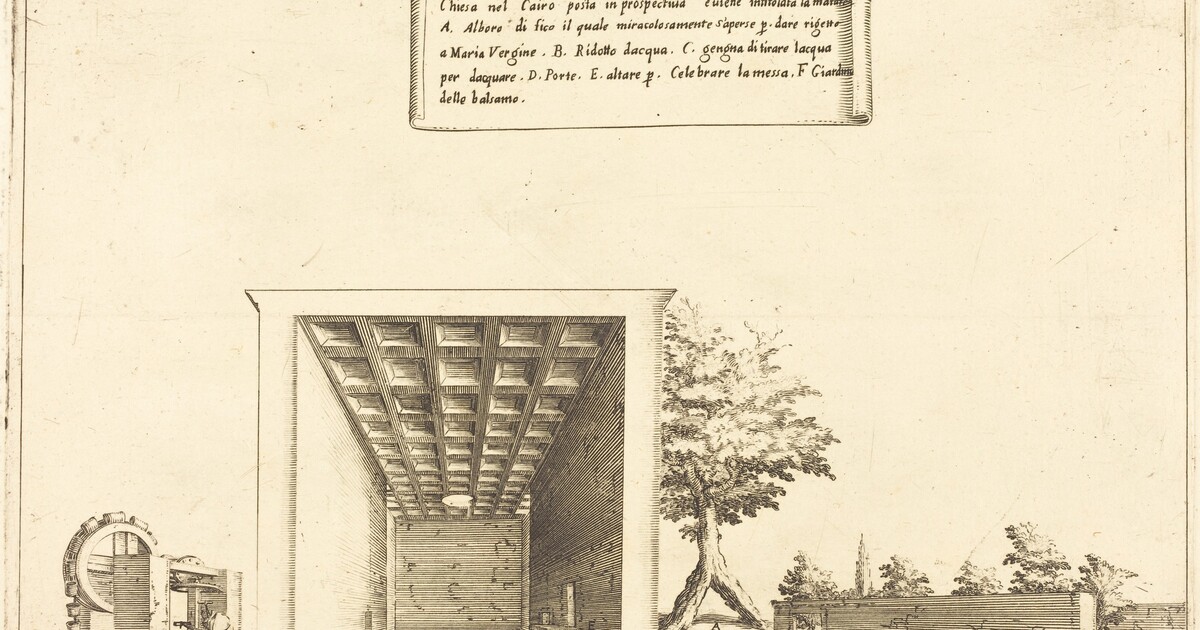 Chiesa nel Cairo posta in prospectiua e uiene intitolata la
A. Alboro di fico il quale miracolosamente s'aperse p. dare rigetto
a Maria Vergine. B. Ridotto dacqua. C. gengna di tirare lacqua
per dacquare. D. Porte. E. altare p. Celebrare la messa. F Giardino
delle balsamo.
E
A